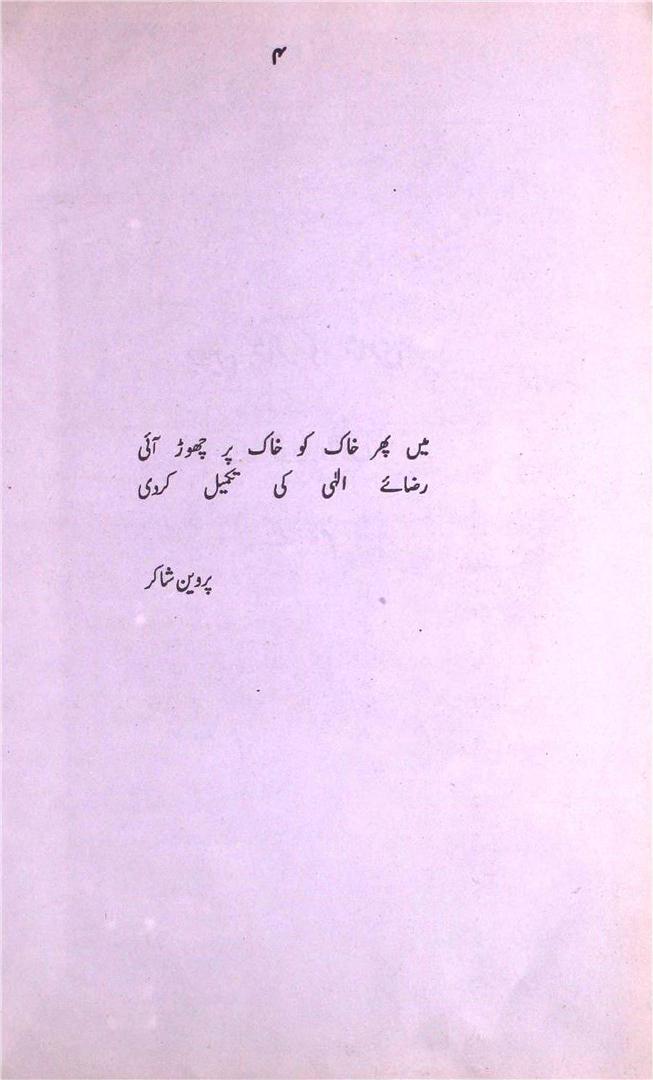 ۴
میں پھر خاک کو خاک پر چھوڑ آئی
رضائے الٰہی کی تکمیل کردی
پروین شاکر